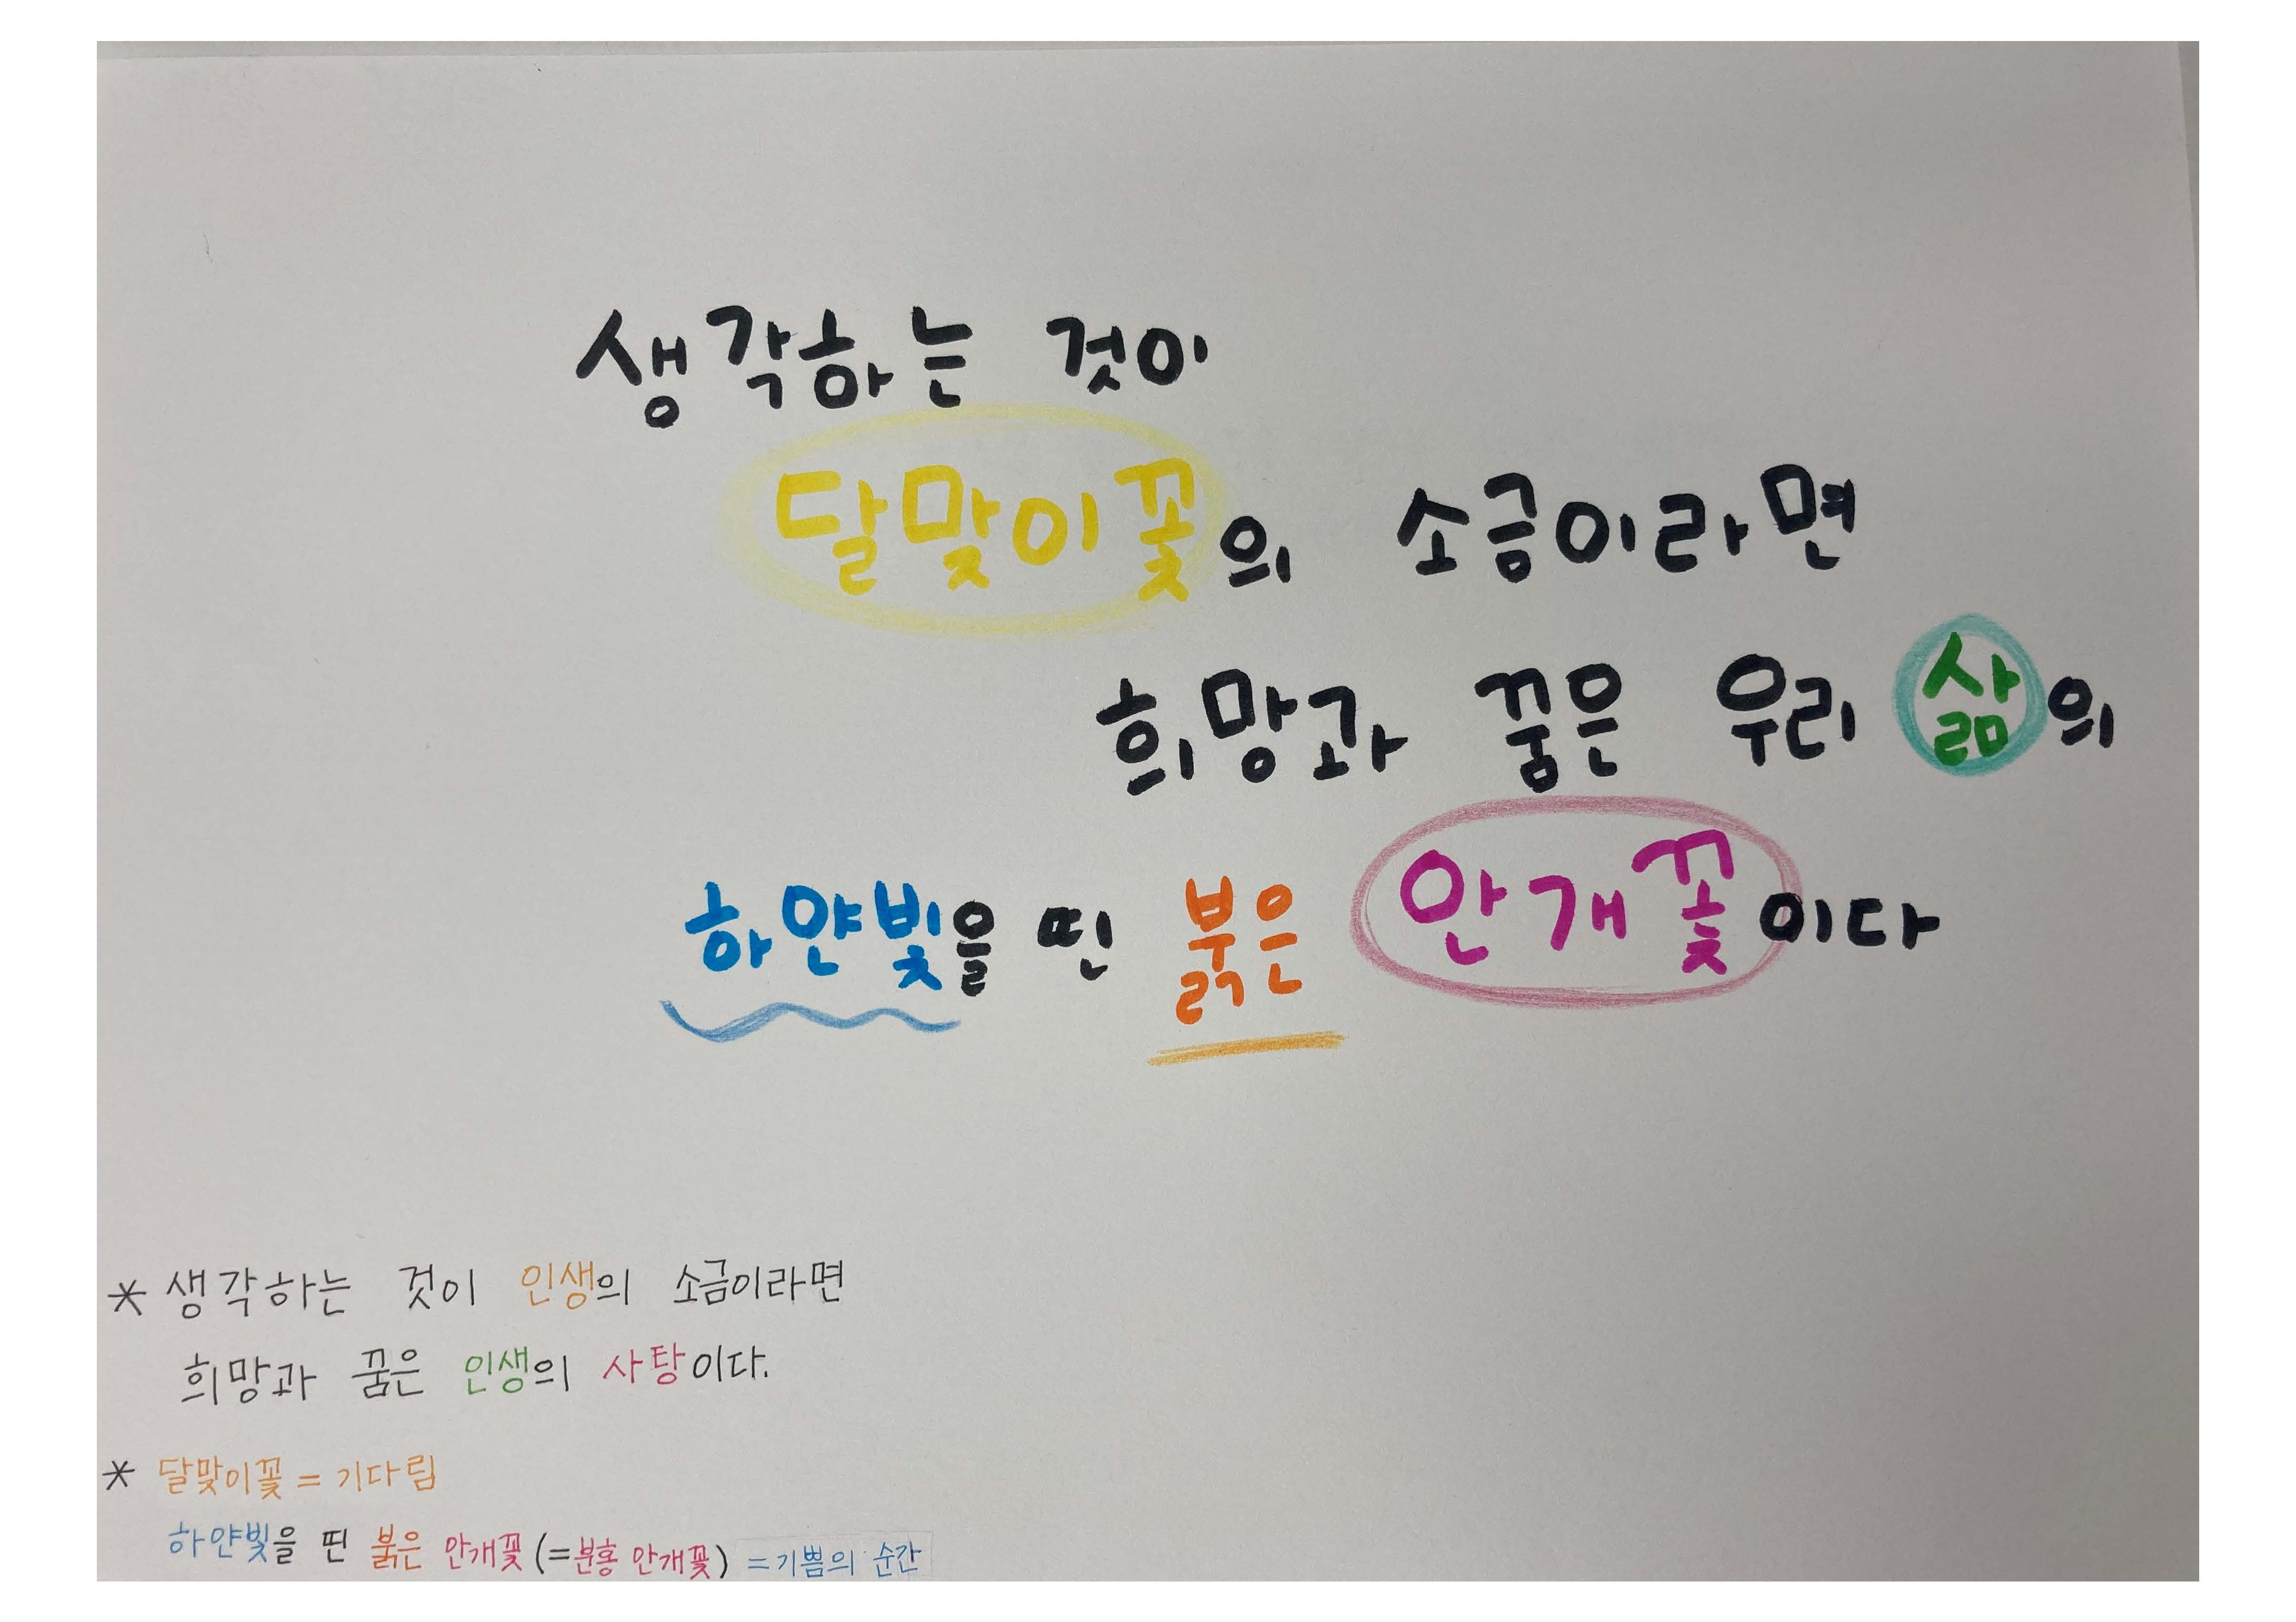 생각하는 것이
달맞이꽃의 소금이라면
희망과 꿈은 우리 삶의
하얀빛을 띤 붉은 안개꽃이다
* 생각하는 것이 인생의 소금이라면
희망과 꿈은 인생의 사탕이다.
* 달맞이꽃 = 기다림
하얀빛을 띤 붉은 안개꽃 (=분홍 안개꽃) = 기쁨의 순간